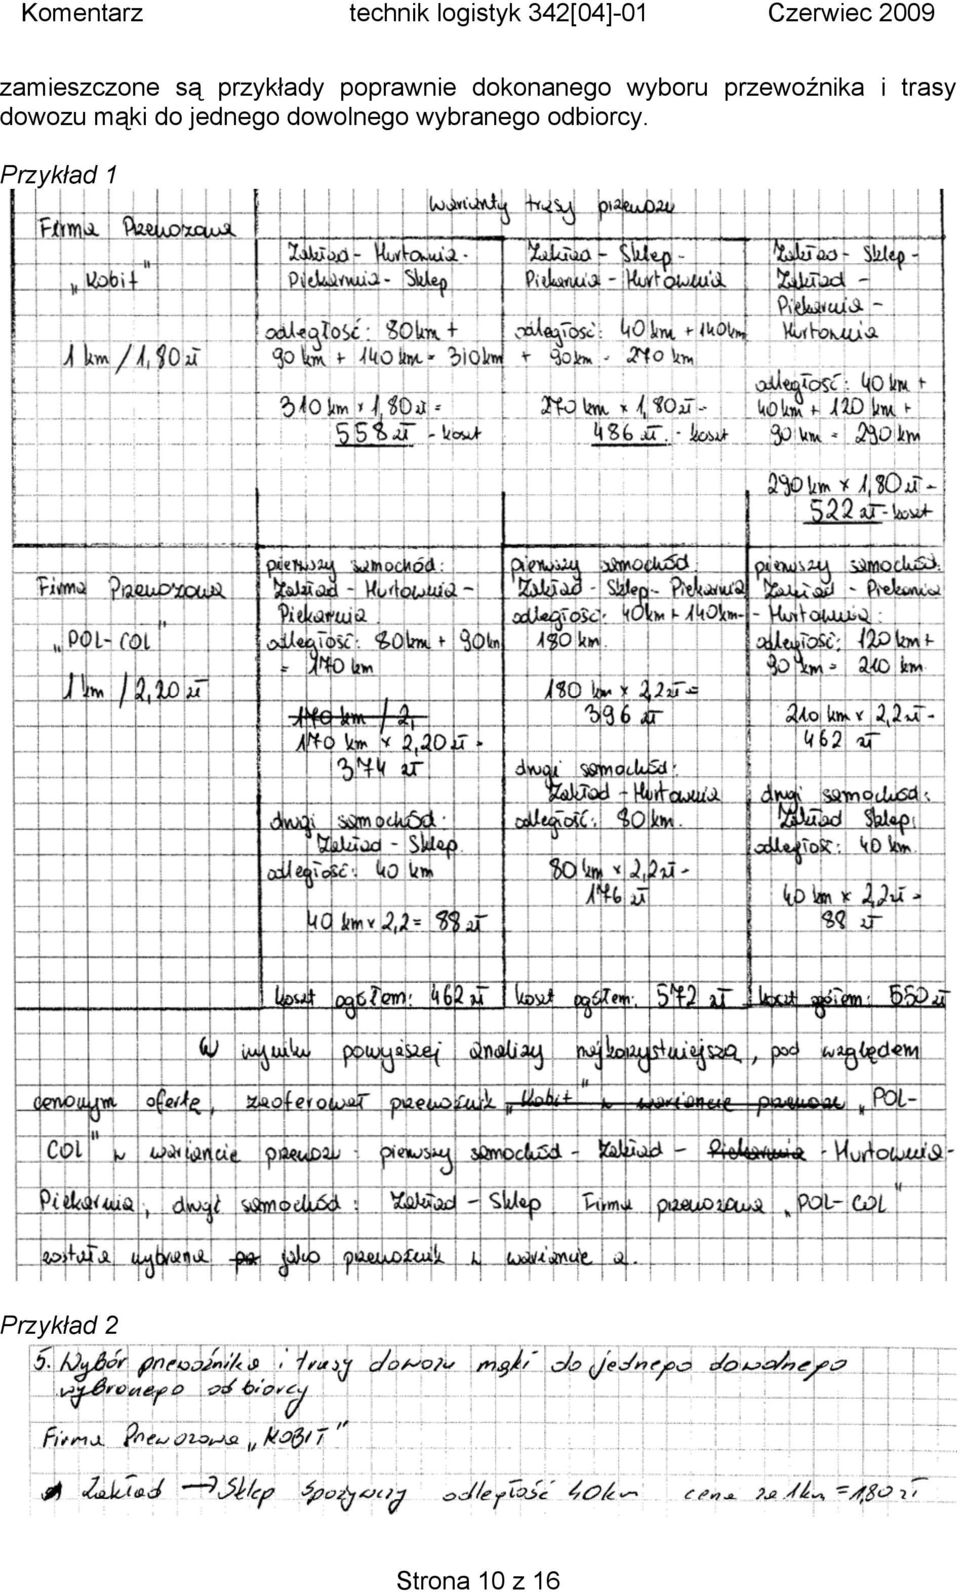 Komentarz technik logistyk 342[04]-01 Czerwiec 2009
zamieszczone są przykłady poprawnie dokonanego wyboru przewoźnika i trasy
dowozu mąki do jednego dowolnego wybranego odbiorcy.
Przykład 1
Warianty trasy przewozu
Firma Przewozowa
„Kobit"
1 km / 1,80 zł
Zakład - Hurtownia -
Piekarnia - Sklep
odległość: 80 km +
90 km + 140 km = 310 km
310 km x 1,80 zł =
558 zł - koszt
Zakład - Sklep -
Piekarnia - Hurtownia
odległość: 40 km + 140 km
+ 90 km = 270 km
270 km x 1,80 zł -
486 zł. - koszt
Zakład - Sklep -
Zakład -
Piekarnia -
Hurtownia
odległość: 40 km +
40 km + 120 km +
90 km = 290 km
290 km x 1,80 zł -
522 zł - koszt
Firma Przewozowa
„POL-COL"
1 km / 2,20 zł
pierwszy samochód:
Zakład - Hurtownia -
Piekarnia
odległość: 80 km + 90 km
= 170 km
170 km / 2,
170 km x 2,20 zł -
374 zł
drugi samochód:
Zakład - Sklep
odległość: 40 km
40 km x 2,2 = 88 zł
koszt ogółem: 462 zł
pierwszy samochód
Zakład - Sklep - Piekarnia
odległość: 40 km + 140 km -
180 km.
180 km x 2,2 zł =
396 zł
drugi samochód:
Zakład - Hurtownia
odległość: 80 km.
80 km x 2,2 zł -
176 zł
koszt ogółem: 572 zł
pierwszy samochód:
Zakład - Piekarnia
- Hurtownia:
odległość: 120 km +
90 km = 210 km
210 km x 2,2 zł -
462 zł
drugi samochód:
Zakład Sklep
odległość: 40 km.
40 km x 2,2 zł =
88 zł
koszt ogółem: 550 zł
W wyniku powyższej analizy najkorzystniejszą, pod względem
cenowym ofertę, zaoferował przewoźnik „Kobit" w wariancie przewozu „POL-
COL" w wariancie przewozu: pierwszy samochód - Zakład - Piekarnia - Hurtownia -
Piekarnia, drugi samochód: Zakład - Sklep Firma przewozowa „POL-COL"
została wybrana jako przewoźnik w wariancie a.
Przykład 2
5. Wybór przewoźnika i trasy dowozu mąki do jednego dowolnego
wybranego odbiorcy
Firma Przewozowa „KOBIT"
Zakład → Sklep Spożywczy odległość 40km cena za 1km = 1,80 zł
Strona 10 z 16